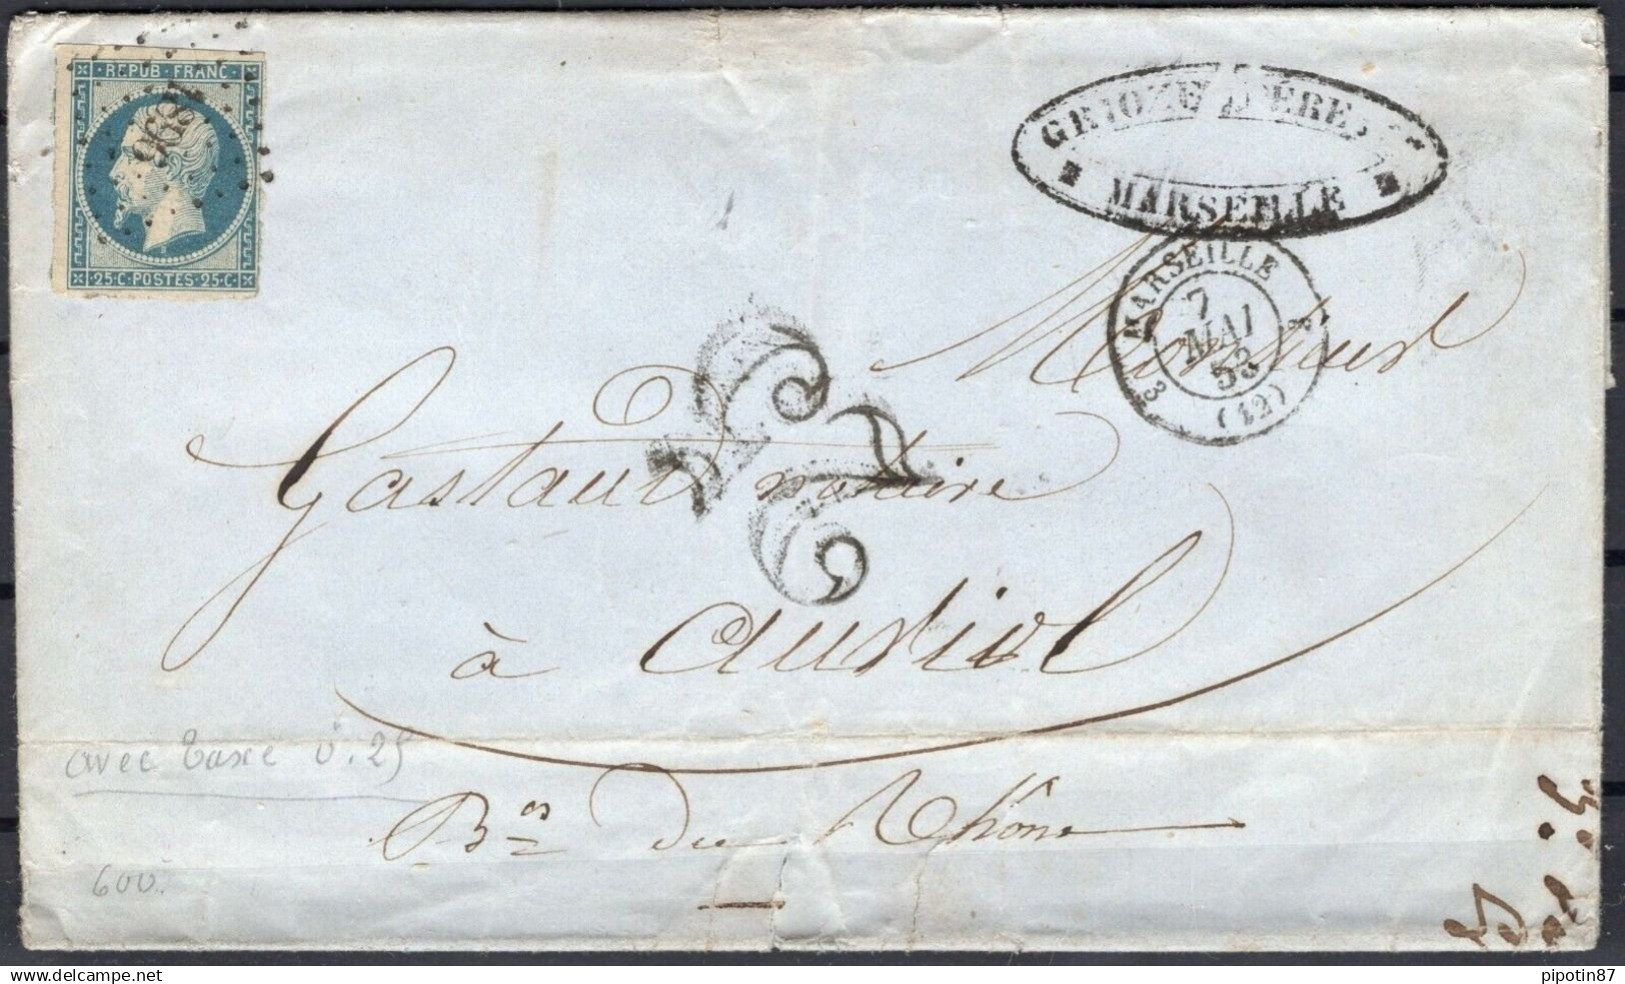 REPUB FRANC
1896
25·C·POSTES·25·C
MARSEILLE
MARSEILLE
7
MAI
53
3
(12)
Monsieur
25
Gastaud notaire
à Auriol
avec taxe 0.25
Bes du Rhône
600.
pipotin87